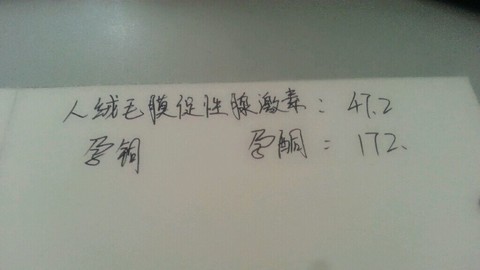 人绒毛膜促性腺激素：47.2
孕铜 孕酮：172.